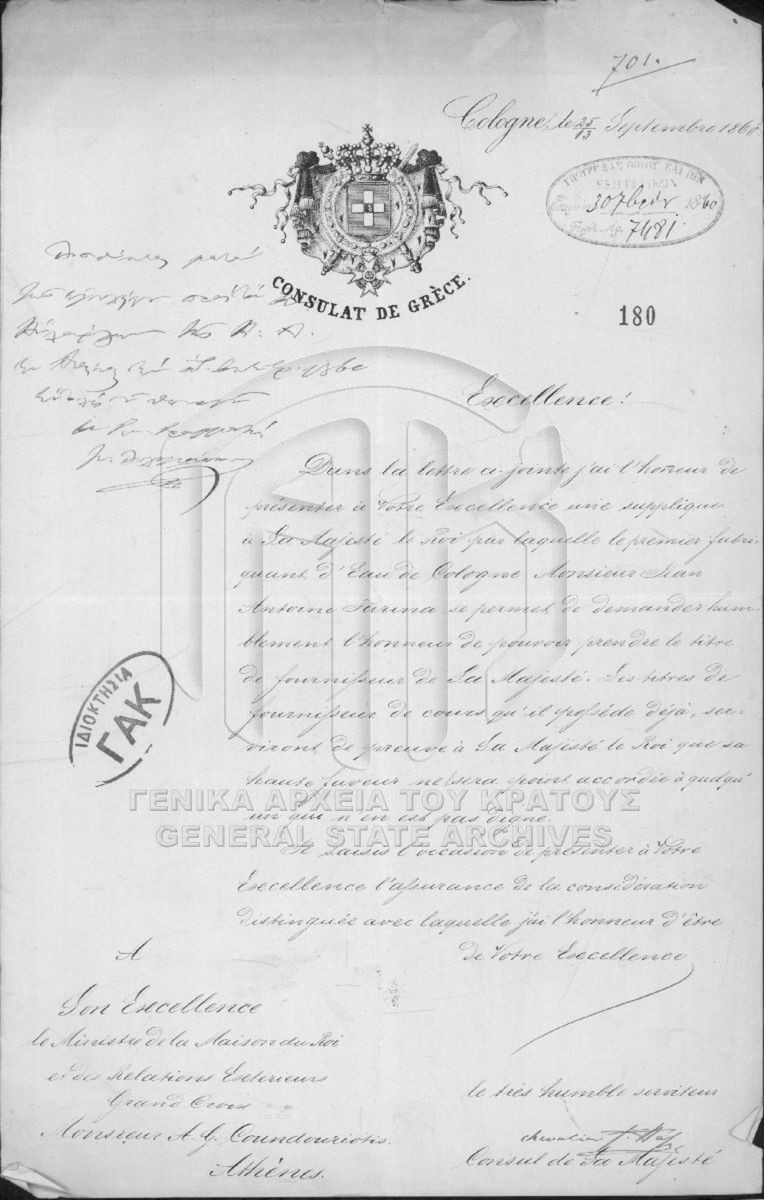 701.
Cologne, le 25/13 Septembre 1860
30 7βρίου 1860
7481
CONSULAT DE GRÈCE.
180
Excellence!
Dans la lettre a-jointe j'ai l'honneur de
présenter à Votre Excellence une supplique
à Sa Majesté le Roi par laquelle le premier fabri-
quant d'Eau de Cologne Monsieur Jean
Antoine Farina se permet de demander hum-
blement l'honneur de pouvoir prendre le titre
de fournisseur de Sa Majesté. Les titres de
fournisseur de cours qu'il possède déjà, ser-
viront de preuve à Sa Majesté le Roi que sa
haute faveur ne sera point accordée à quelqu'
un qui n'en est pas digne.
Je saisis l'occasion de présenter à Votre
Excellence l'assurance de la considération
distinguée avec laquelle j'ai l'honneur d'être
de Votre Excellence
A
Son Excellence
le Ministre de la Maison du Roi
et des Relations Exterieurs
Grand Croix
Monsieur A. G. Coundouriotis.
Athènes.
le très humble serviteur
chevalier
Consul de Sa Majesté
ΙΔΙΟΚΤΗΣΙΑ
ΓΑΚ
ΓΕΝΙΚΑ ΑΡΧΕΙΑ ΤΟΥ ΚΡΑΤΟΥΣ
GENERAL STATE ARCHIVES